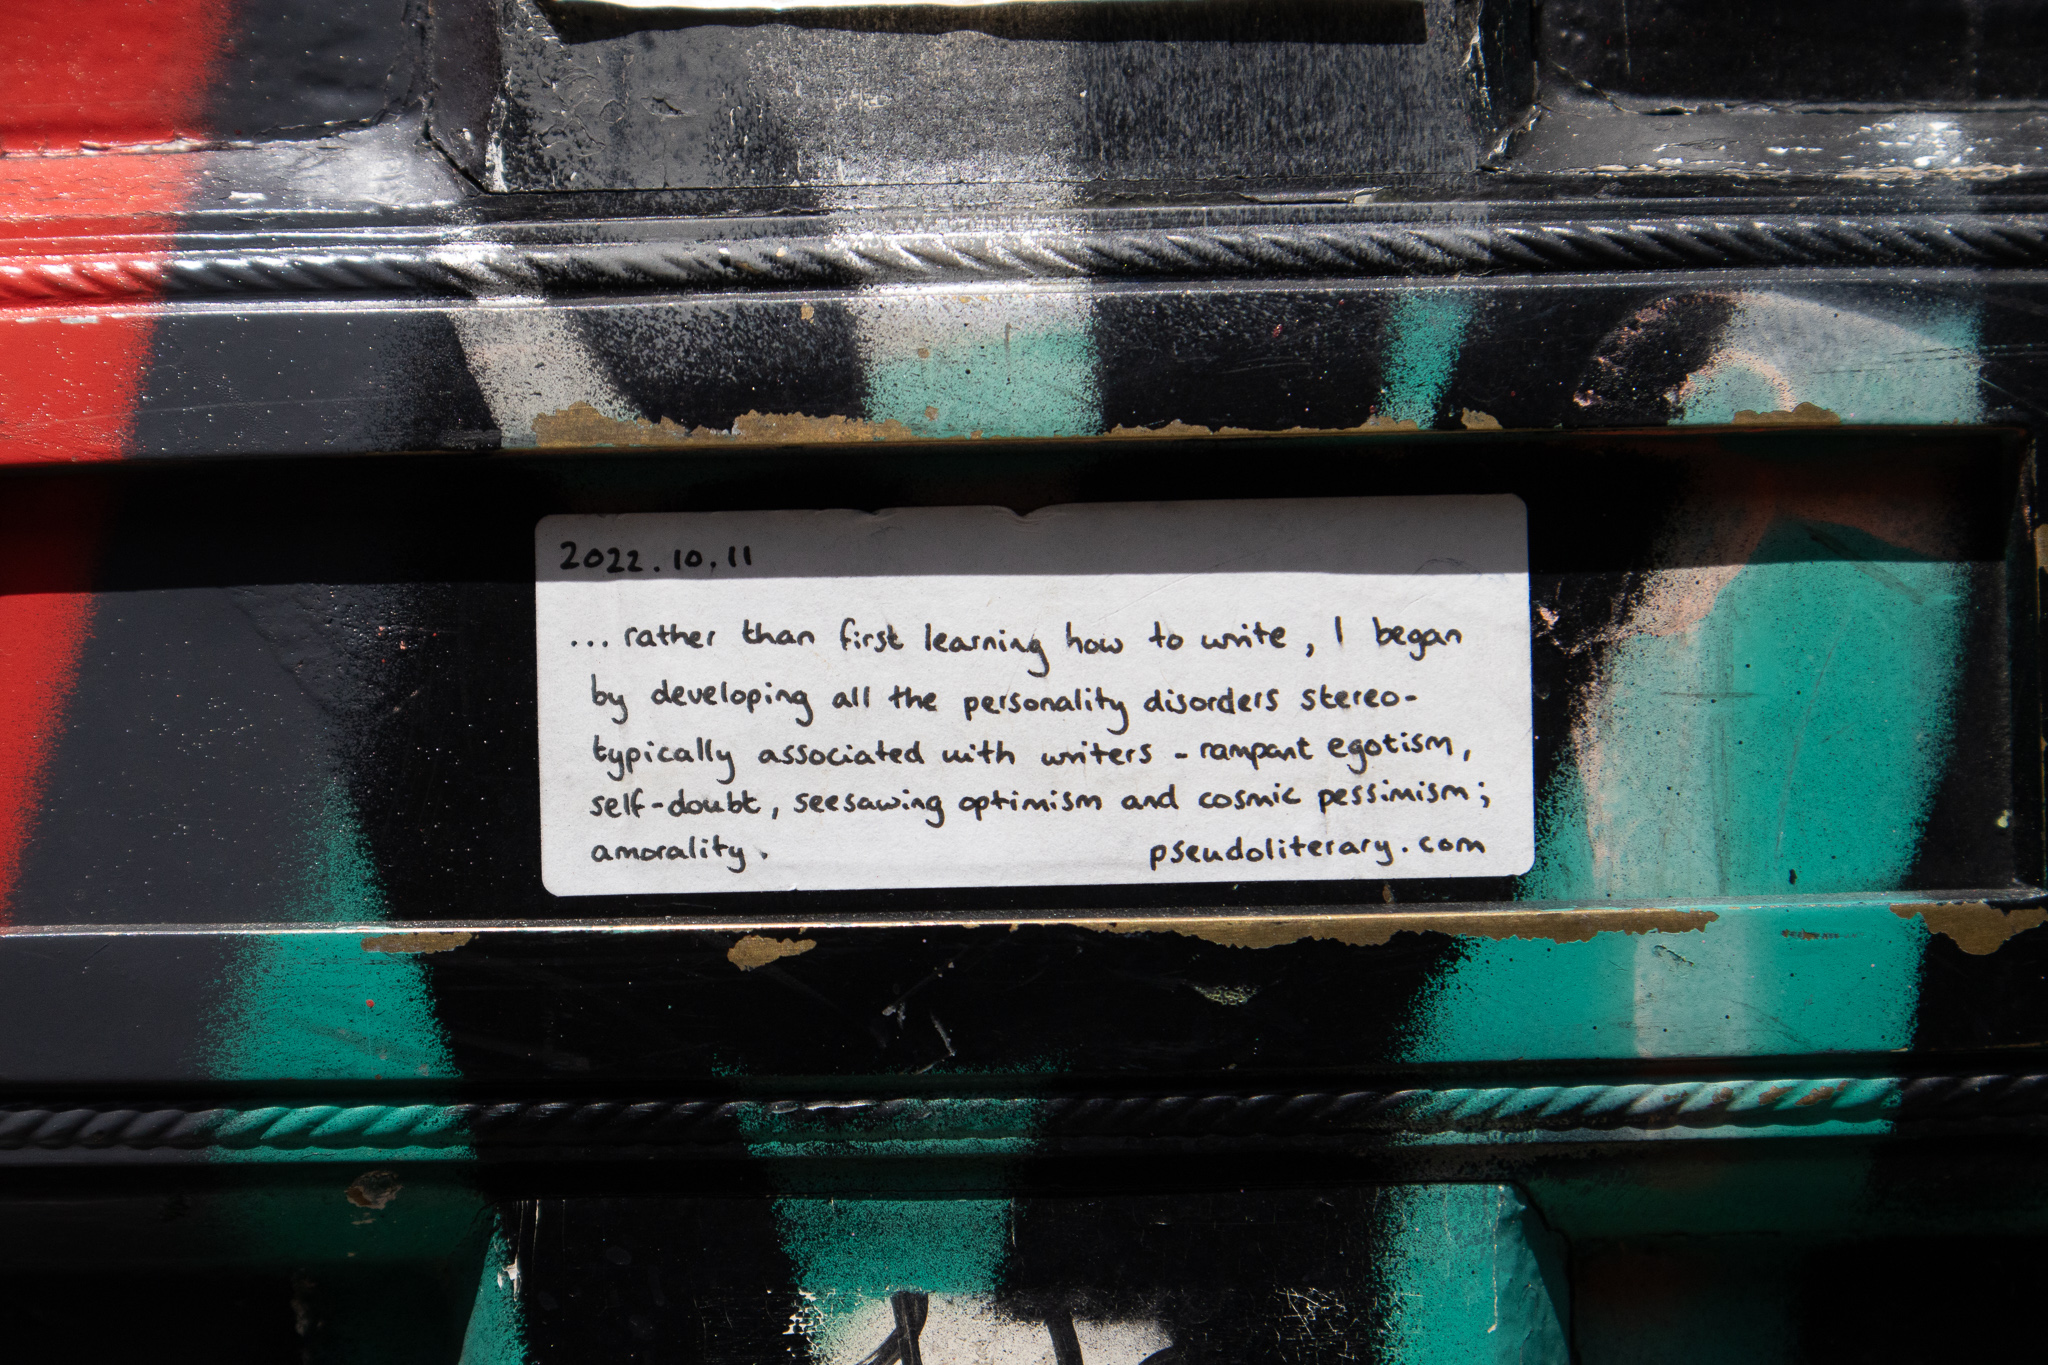 2022.10.11
... rather than first learning how to write, I began
by developing all the personality disorders stereo-
typically associated with writers - rampant egotism,
self-doubt, seesawing optimism and cosmic pessimism;
amorality. pseudoliterary.com